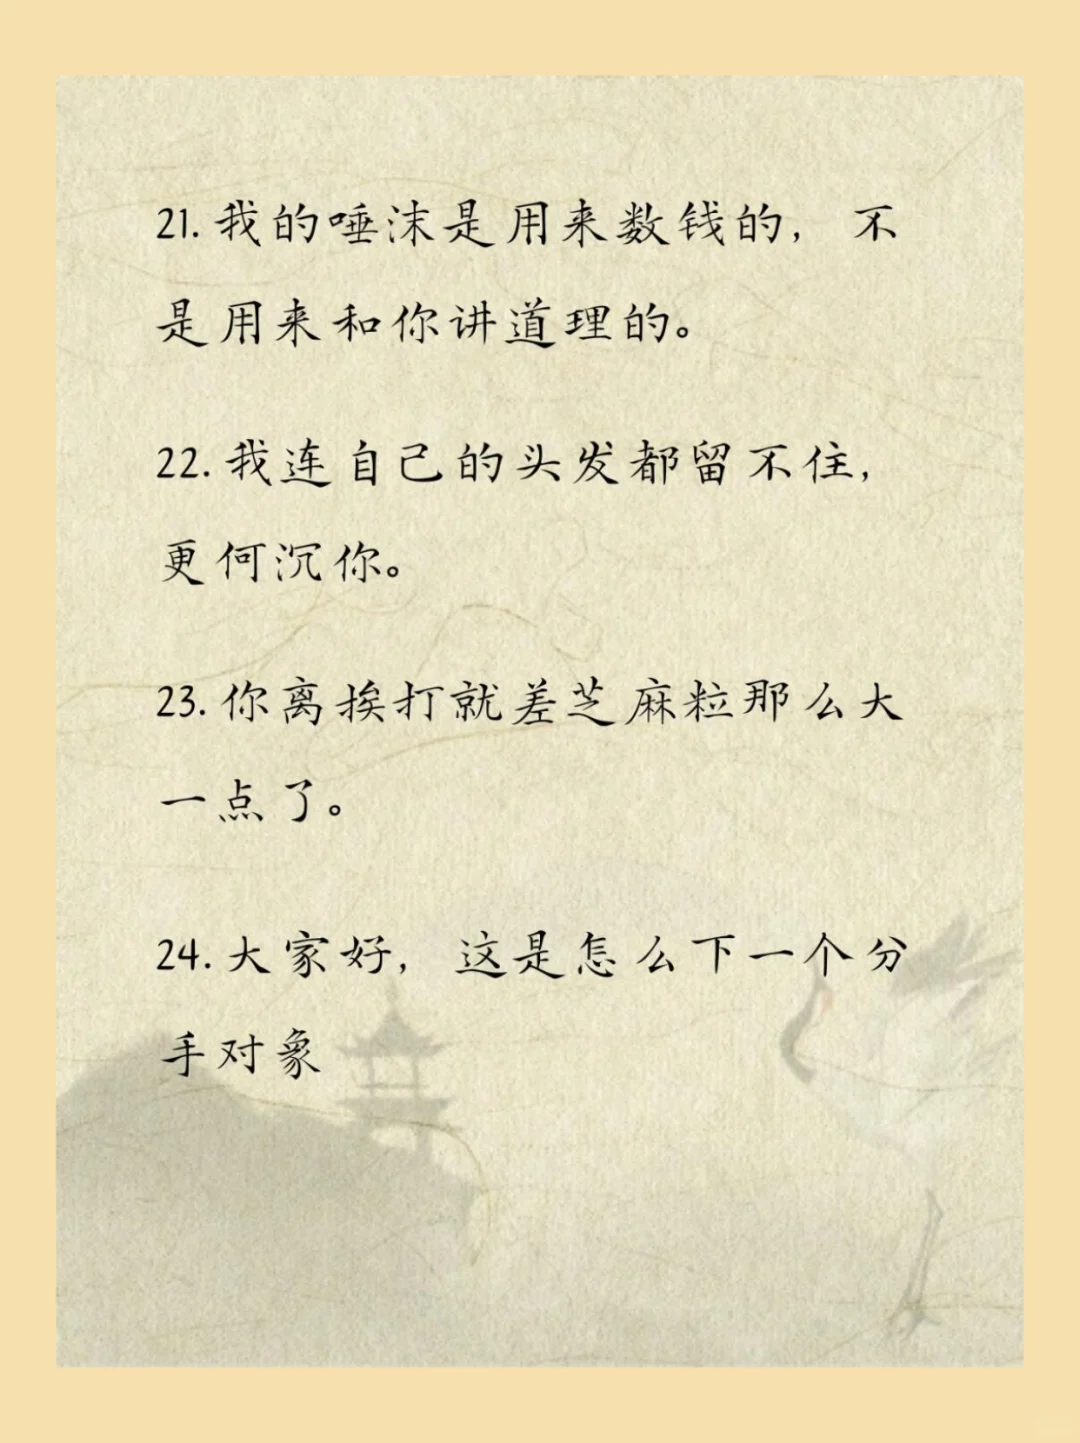 21. 我的唾沫是用来数钱的，不
是用来和你讲道理的。
22. 我连自己的头发都留不住，
更何沉你。
23. 你离挨打就差芝麻粒那么大
一点了。
24. 大家好，这是怎么下一个分
手对象